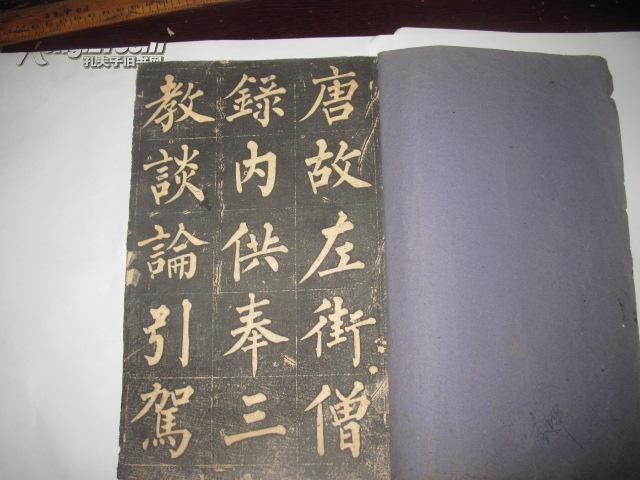 唐故左街僧
錄内供奉三
教談論引駕
孔夫子旧书网